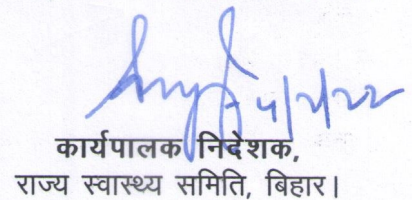 4/2/22
कार्यपालक निदेशक,
राज्य स्वास्थ्य समिति, बिहार।